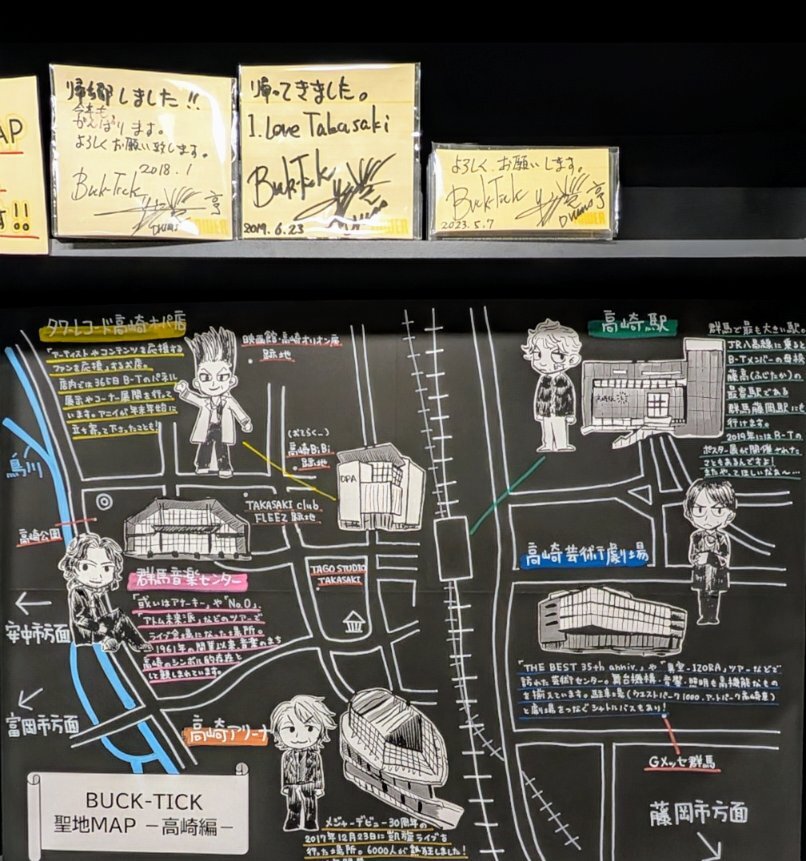 AP
す!!
帰郷しました!!
今年も
がんばります。
よろしくお願い致します。
2018.1
BUCK-TICK
亨
帰ってきました。
I. Love Takasaki
BUCK-TICK
2019.6.23
よろしく、お願いします。
BUCK-TICK
2023.5.7
タワーレコード高崎オーパ店
「アーティストやコンテンツを応援する
ファンを応援」する大店。
店内では365日B-Tのパネル
展示やコーナー展開を行って
います。アニイが年末年始に
立ち寄って下さったことも!
映画館・高崎オリオン座
跡地
(おとらく…)
高崎BiBi
跡地
OPA
TAKASAKI club
FLEEZ跡地
烏川
高崎公園
群馬音楽センター
「或いはアナーキー」や「No.0」、
「アトム未来派」などのツアーで
ライブ会場になった場所。
1961年の開館以来、音楽のまち
高崎のシンボル的存在と
して親しまれています。
TAGO STUDIO
TAKASAKI
安中市方面
富岡市方面
高崎駅
群馬で最も大きい駅。
JR八高線に乗ると
B-Tメンバーの母校
藤高(ふじたか)の
最寄駅である
群馬藤岡駅にも
行けます。
2019年にはB-Tの
ポスター展が開催された
こともあるんですよ!
またやってほしいなぁ〜…
高崎芸術劇場
「THE BEST 35th anniv.」や「異空-IZORA」ツアーなどで
訪れた芸術センター。舞台機構・音響・照明も高機能なもの
を揃えています。駐車場(ウエストパーク1000、アートパーク高崎東)
と劇場をつなぐシャトルバスもあり!
Gメッセ群馬
藤岡市方面
高崎アリーナ
メジャーデビュー30周年の
2017年12月23日に凱旋ライブを
行った場所。6000人が熱狂しました!
BUCK-TICK
聖地MAP －高崎編－